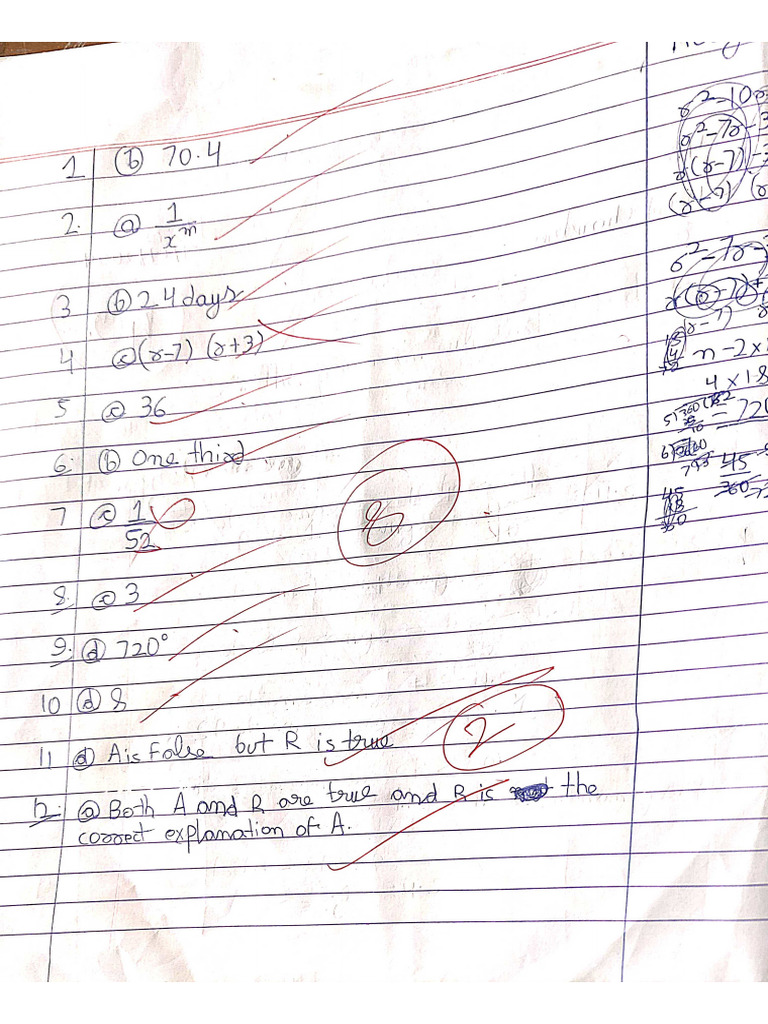 1 (b) 70.4
2. (a) 1/x^m
3 (b) 24 days
4 (c) (r-7) (r+3)
5 (c) 36
6. (b) One third
7 (c) 1/52
8
8. (c) 3
9. (d) 720°
10 (d) 8
2
11 (d) A is false but R is true
12. (a) Both A and R are true and R is the
correct explanation of A.
r²-7r
n-2×1
4×18
=720